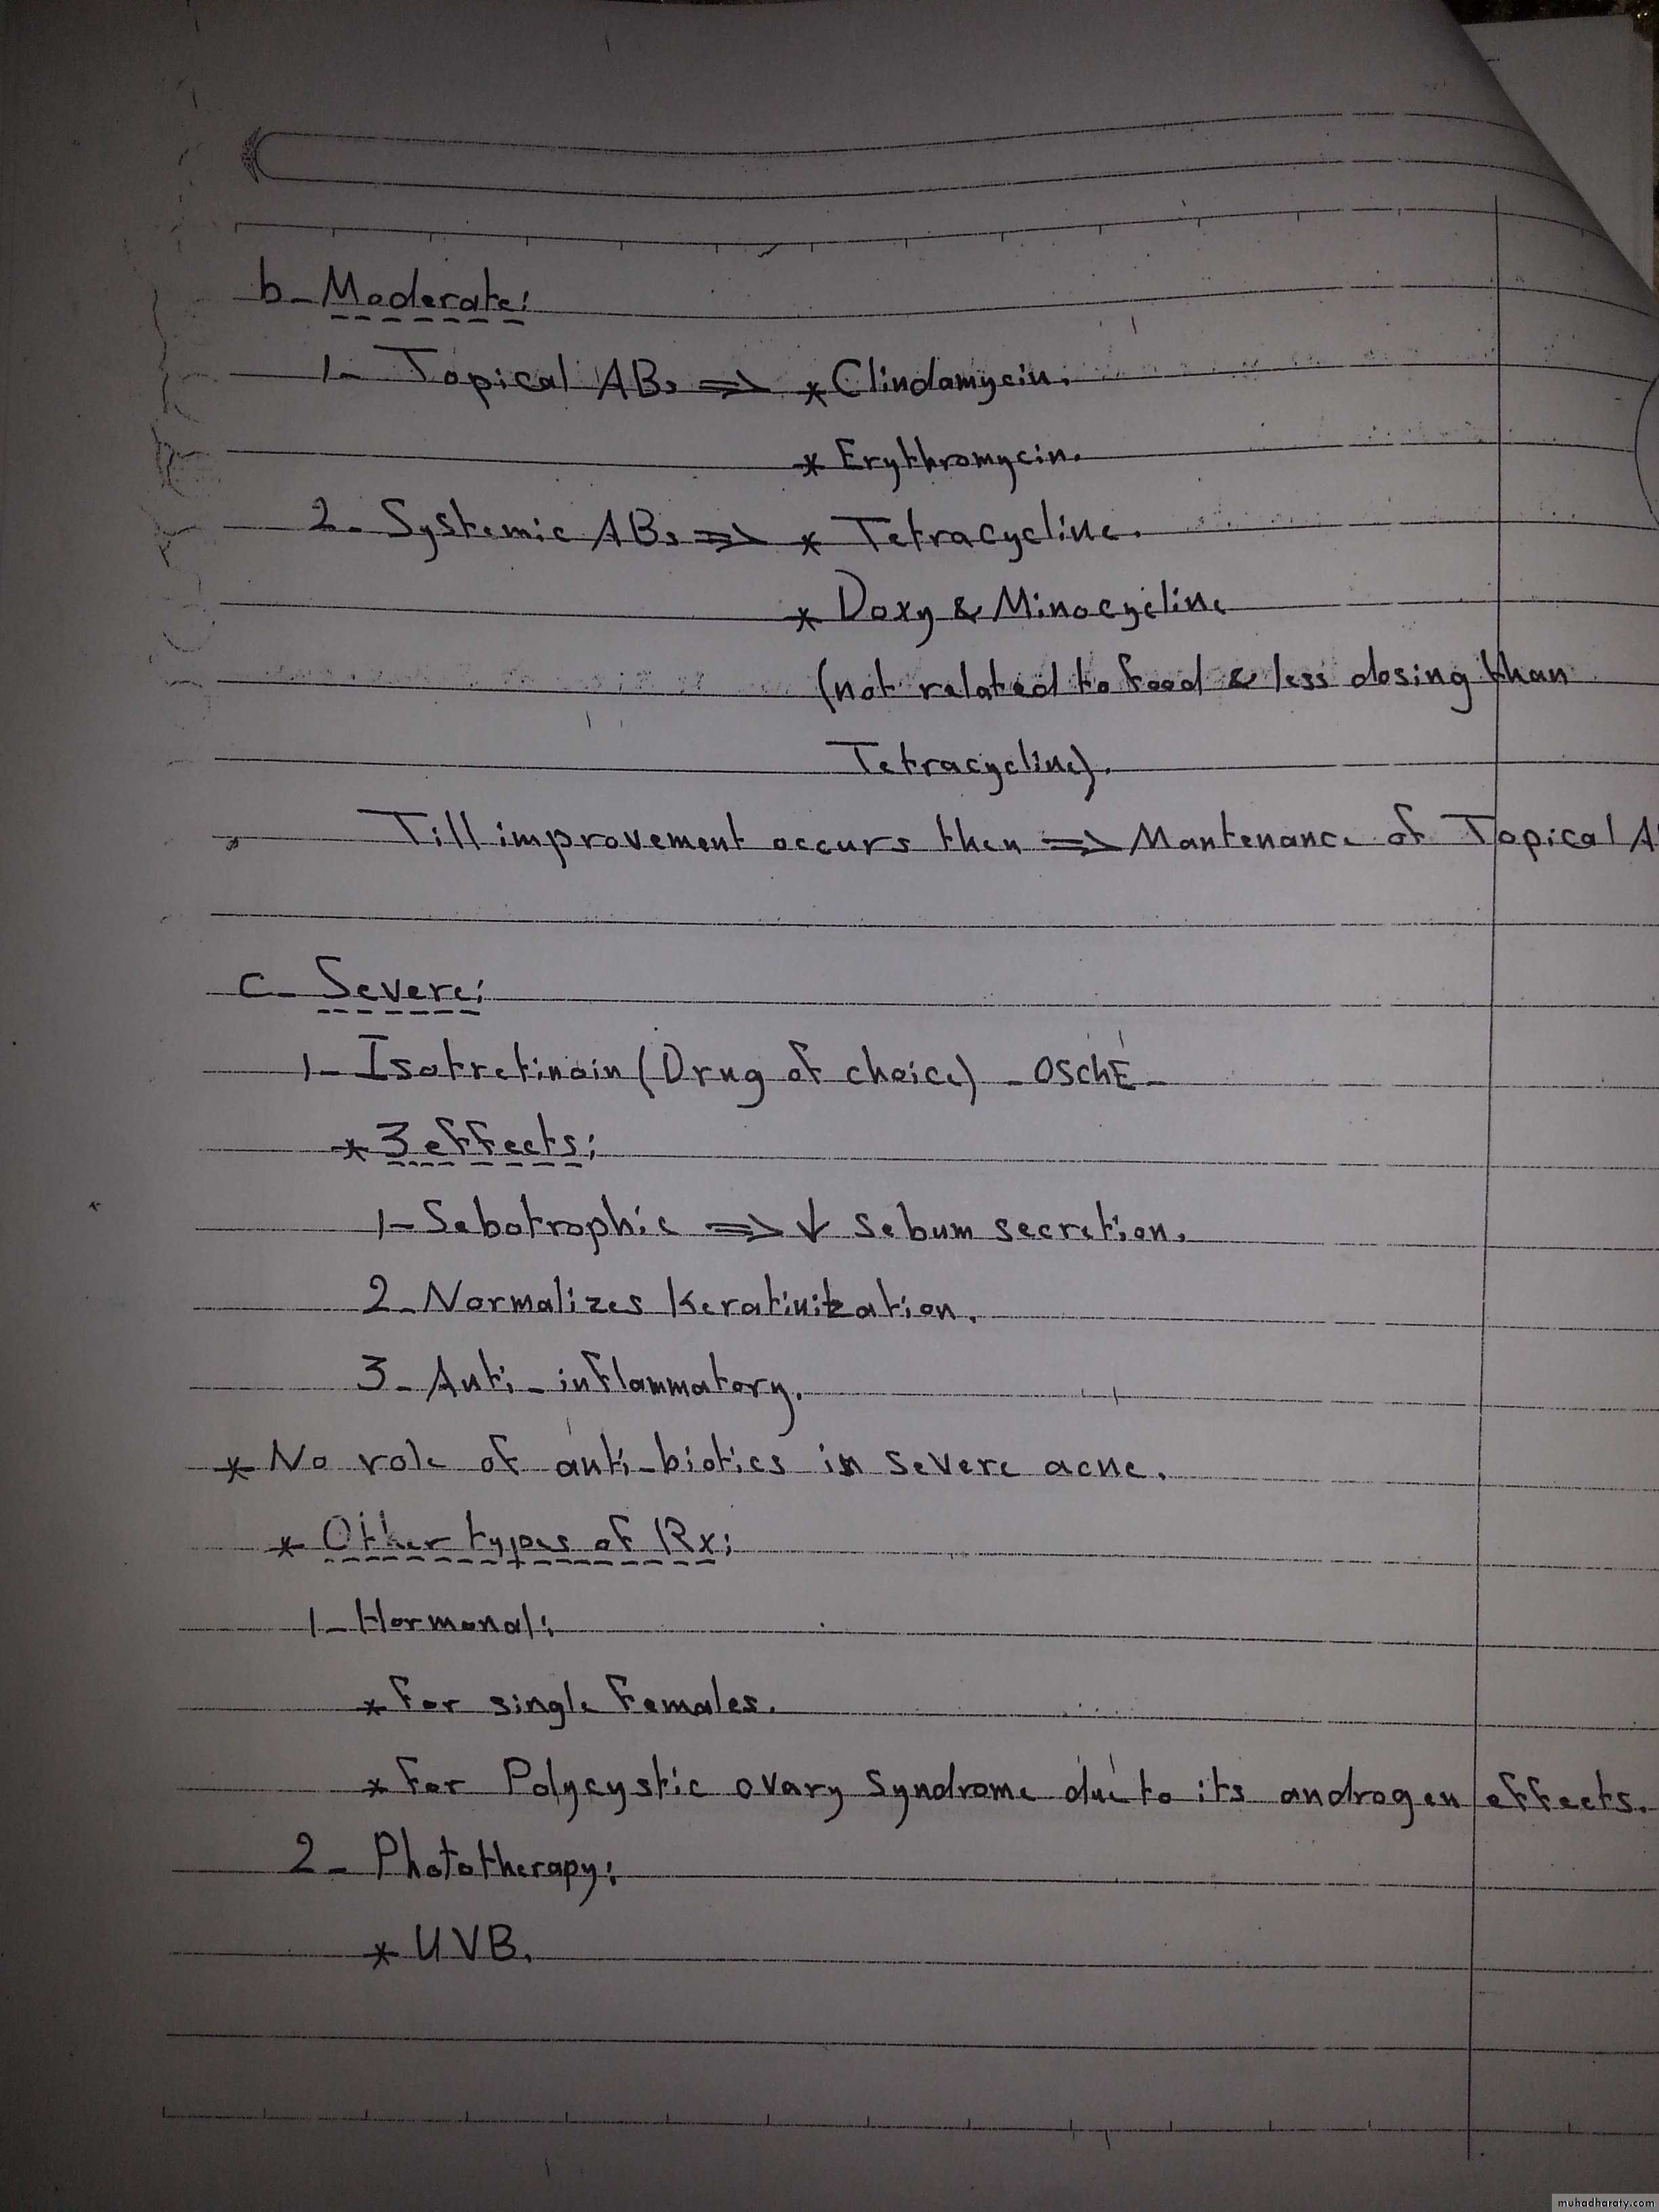 b- Moderate:
1- Topical ABs ⇒ * Clindamycin.
* Erythromycin.
2- Systemic ABs ⇒ * Tetracycline.
* Doxy & Minocycline
(not related to food & less dosing than
Tetracycline).
Till improvement occurs then ⇒ Mantenance of Topical A
c- Severe:
1- Isotretinoin (Drug of choice) - OSChE -
* 3 effects:
1- Sebotrophic ⇒ ↓ sebum secretion.
2- Normalizes Keratinization.
3- Anti-inflammatory.
* No role of anti-biotics in severe acne.
* Other types of Rx:
1- Hormonal:
* For single Females.
* For Polycystic ovary syndrome due to its androgen effects.
2- Phototherapy:
* UVB.
muhadharaty.com